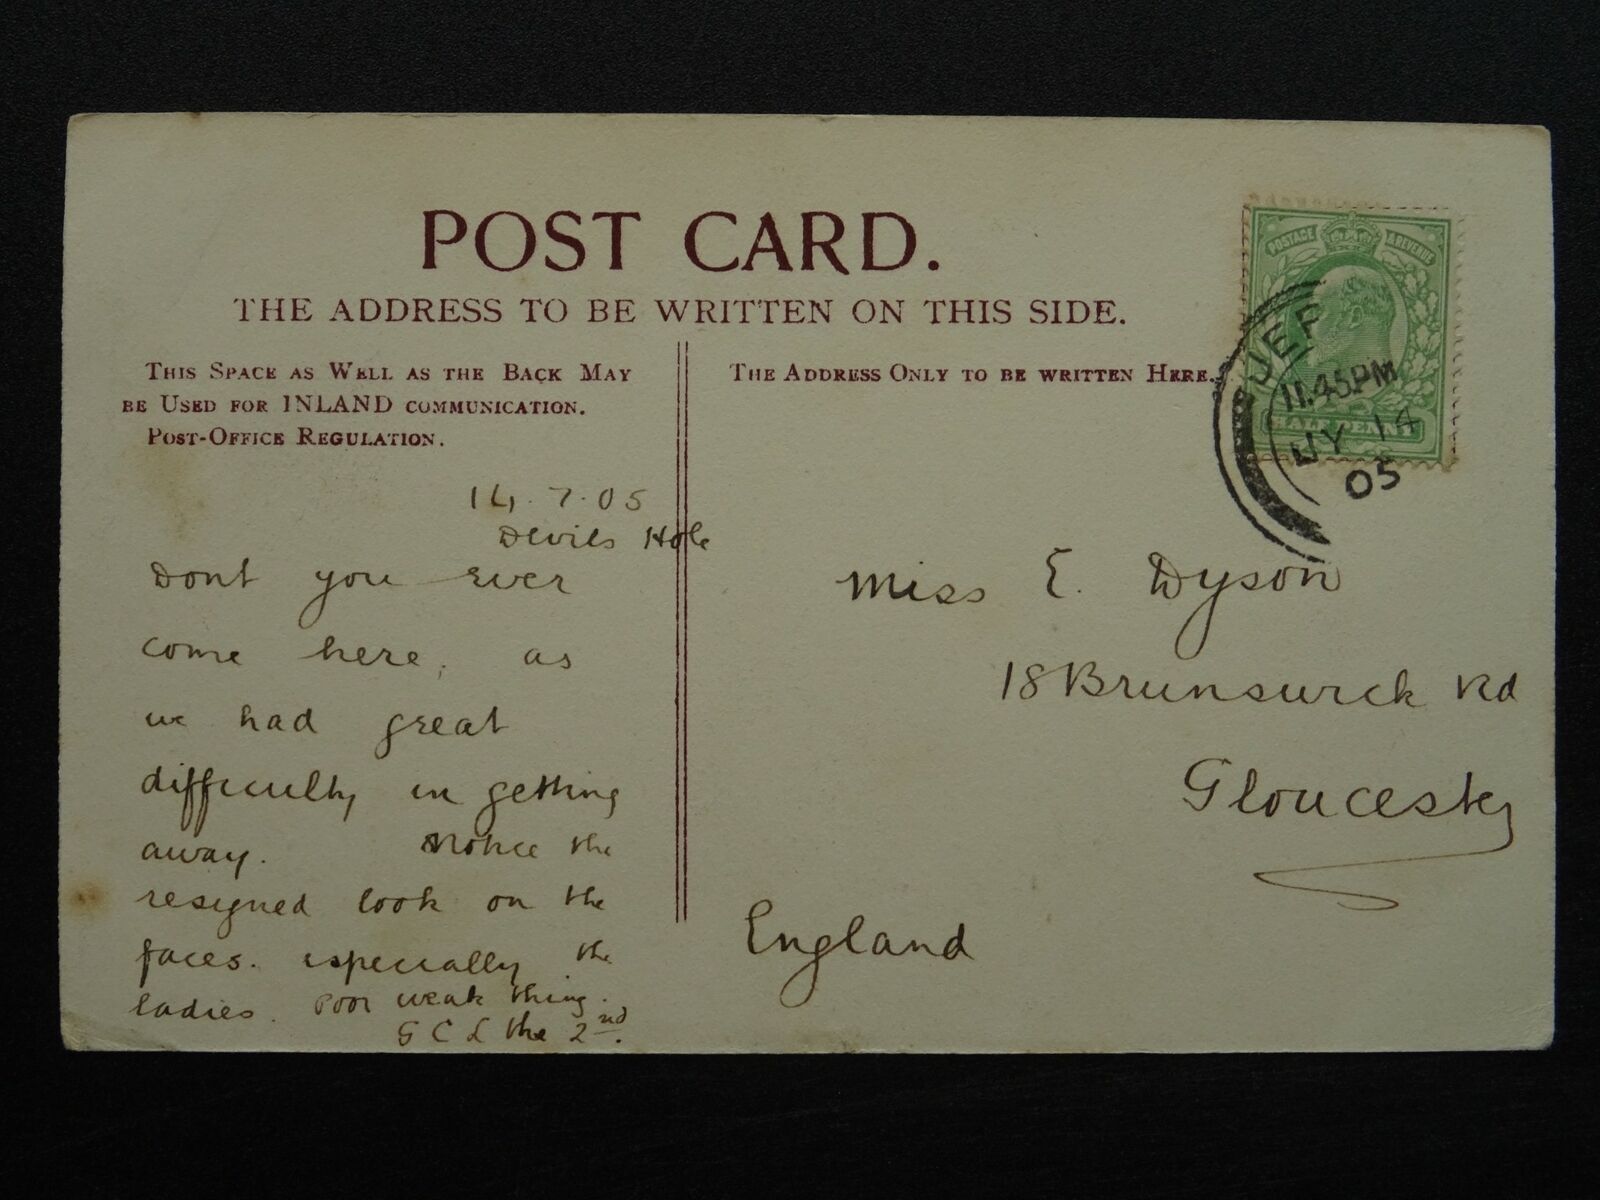 POST CARD.
THE ADDRESS TO BE WRITTEN ON THIS SIDE.
THIS SPACE AS WELL AS THE BACK MAY
BE USED FOR INLAND COMMUNICATION.
POST-OFFICE REGULATION.
THE ADDRESS ONLY TO BE WRITTEN HERE.
POSTAGE & REVENUE
HALF PENNY
JER
11.45PM
JY 14
05
14.7.05
Devils Hole
Dont you ever
come here, as
we had great
difficulty in getting
away. Notice the
resigned look on the
faces. especially the
ladies. Poor weak thing.
G C L the 2nd.
Miss E. Dyson
18 Brunswick Rd
Gloucester
England